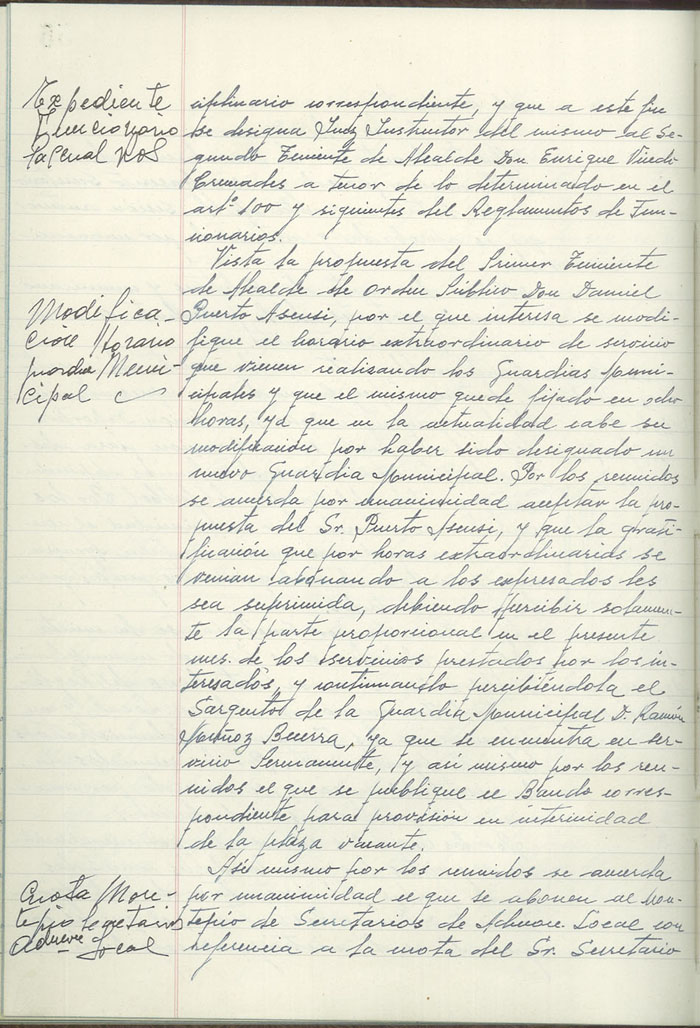 Expediente
Funcionario
ciplinario correspondiente, y que a este fin
se designa Juez Instructor del mismo al Se-
gundo Teniente de Alcalde Don Enrique
Cremades a tenor de lo determinado en el
artº 100 y siguientes del Reglamentos de Fun-
cionarios.
Modifica-
ción Horario
guardia Muni-
cipal
Vista la propuesta del Primer Teniente
de Alcalde de Orden Público Don Daniel
Puerto Asensi, por el que interesa se modi-
fique el horario extraordinario de servicio
que vienen realizando los Guardias Muni-
cipales y que el mismo quede fijado en ocho
horas, ya que en la actualidad cabe su
modificación por haber sido designado un
nuevo Guardia Municipal. Por los reunidos
se acuerda por unanimidad aceptar la pro-
puesta del Sr. Puerto Asensi, y que la grati-
ficación que por horas extraordinarias se
venian abonando a los expresados les
sea suprimida, debiendo percibir solamen-
te la parte proporcional en el presente
mes. de los servicios prestados por los in-
teresados, y continuando percibiéndola el
Sargento de la Guardia Municipal D. Ramón
Muñoz Becerra, ya que se encuentra en ser-
vicio Permanente, y asi mismo por los reu-
nidos el que se publique el Bando corres-
pondiente para provisión en interinidad
de la plaza vacante.
Cuota Mon-
tepio Secretarios
Local
Asi mismo por los reunidos se acuerda
por unanimidad el que se abonen al Mon-
tepío de Secretarios de Admon. Local con
referencia a la cuota del Sr. Secretario